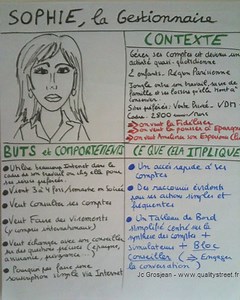 SOPHIE, la Gestionnaire
CONTEXTE
Gérer ses comptes et devenu une
activité quasi-quotidienne
2 enfants. Région Parisienne
Jongle entre son travail, sa vie de
famille et ses loisirs
CSP
2800 euros/mois
→ on veut la Fidéliser
→ on veut la pousser à Epargner
→ on veut Améliorer son Expérience
BUTS et COMPORTEMENTS
• Utilise beaucoup Internet dans le
cadre de son travail
• Vient 3 à 4 fois/semaine en soirée
• Veut Consulter ses Comptes
• Veut Faire des Virements
(y compris internationaux)
• Veut échanger avec son conseiller
sur des questions précises (épargne,
assurance, ...)
• Pourquoi pas faire une
souscription simple via Internet
CE QUE CELA IMPLIQUE
• Un accès rapide à ses
comptes
• Des raccourcis évidents
pour ses actions simples et
fréquentes
• Un Tableau de Bord
simplifié centré sur la
synthèse des comptes +
simulateurs + Bloc
conseiller (→ Engager
la conversation)
JC Grosjean - www.qualitystreet.fr